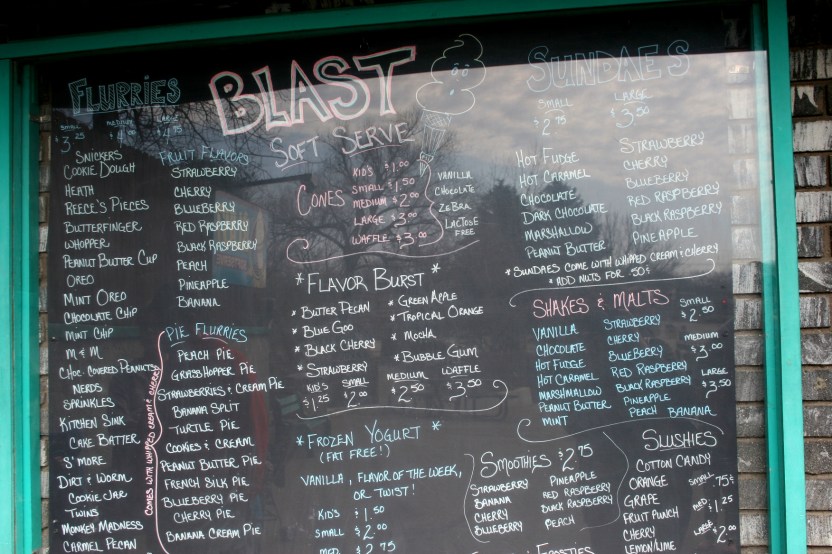 FLURRIES
SMALL MEDIUM LARGE
$3.25 $4.00 $4.75
SNICKERS
COOKIE DOUGH
HEATH
REECE'S PIECES
BUTTERFINGER
WHOPPER
PEANUT BUTTER CUP
OREO
MINT OREO
CHOCOLATE CHIP
MINT CHIP
M & M
CHOC. COVERED PEANUTS
NERDS
SPRINKLES
KITCHEN SINK
CAKE BATTER
S'MORE
DIRT & WORM
COOKIE JAR
TWINS
MONKEY MADNESS
CARMEL PECAN
FRUIT FLAVORS
STRAWBERRY
CHERRY
BLUEBERRY
RED RASPBERRY
BLACK RASPBERRY
PEACH
PINEAPPLE
BANANA
PIE FLURRIES
PEACH PIE
GRASSHOPPER PIE
STRAWBERRIES & CREAM PIE
BANANA SPLIT
TURTLE PIE
COOKIES & CREAM
PEANUT BUTTER PIE
FRENCH SILK PIE
BLUEBERRY PIE
CHERRY PIE
BANANA CREAM PIE
COMES WITH WHIPPED CREAM & CHERRY
BLAST
SOFT SERVE
CONES
KID'S $1.00
SMALL $1.50
MEDIUM $2.00
LARGE $3.00
WAFFLE $3.00
VANILLA
CHOCOLATE
ZEBRA
LACTOSE
FREE
* FLAVOR BURST *
* BUTTER PECAN
* BLUE GOO
* BLACK CHERRY
* STRAWBERRY
* GREEN APLE
* TROPICAL ORANGE
* MOCHA
* BUBBLE GUM
KID'S SMALL MEDIUM WAFFLE
$1.25 $2.00 $2.50 $3.50
* FROZEN YOGURT *
(FAT FREE!)
VANILLA, FLAVOR OF THE WEEK,
OR TWIST!
KID'S $1.50
SMALL $2.00
MED. $2.75
SUNDAES
SMALL LARGE
$2.75 $3.50
HOT FUDGE
HOT CARAMEL
CHOCOLATE
DARK CHOCOLATE
MARSHMALLOW
PEANUT BUTTER
STRAWBERRY
CHERRY
BLUEBERRY
RED RASPBERRY
BLACK RASPBERRY
PINEAPPLE
* SUNDAES COME WITH WHIPPED CREAM & CHERRY
* ADD NUTS FOR 50¢
SHAKES & MALTS
VANILLA
CHOCOLATE
HOT FUDGE
HOT CARAMEL
MARSHMALLOW
PEANUT BUTTER
MINT
STRAWBERRY
CHERRY
BLUEBERRY
RED RASPBERRY
BLACK RASPBERRY
PINEAPPLE
PEACH BANANA
SMALL
$2.50
MEDIUM
$3.00
LARGE
$3.50
SMOOTHIES $2.75
STRAWBERRY
BANANA
CHERRY
BLUEBERRY
PINEAPPLE
RED RASPBERRY
BLACK RASPBERRY
PEACH
SLUSHIES
COTTON CANDY
ORANGE
GRAPE
FRUIT PUNCH
CHERRY
LEMON/LIME
SMALL 75¢
MED. $1.25
LARGE $2.00
FROSTIES